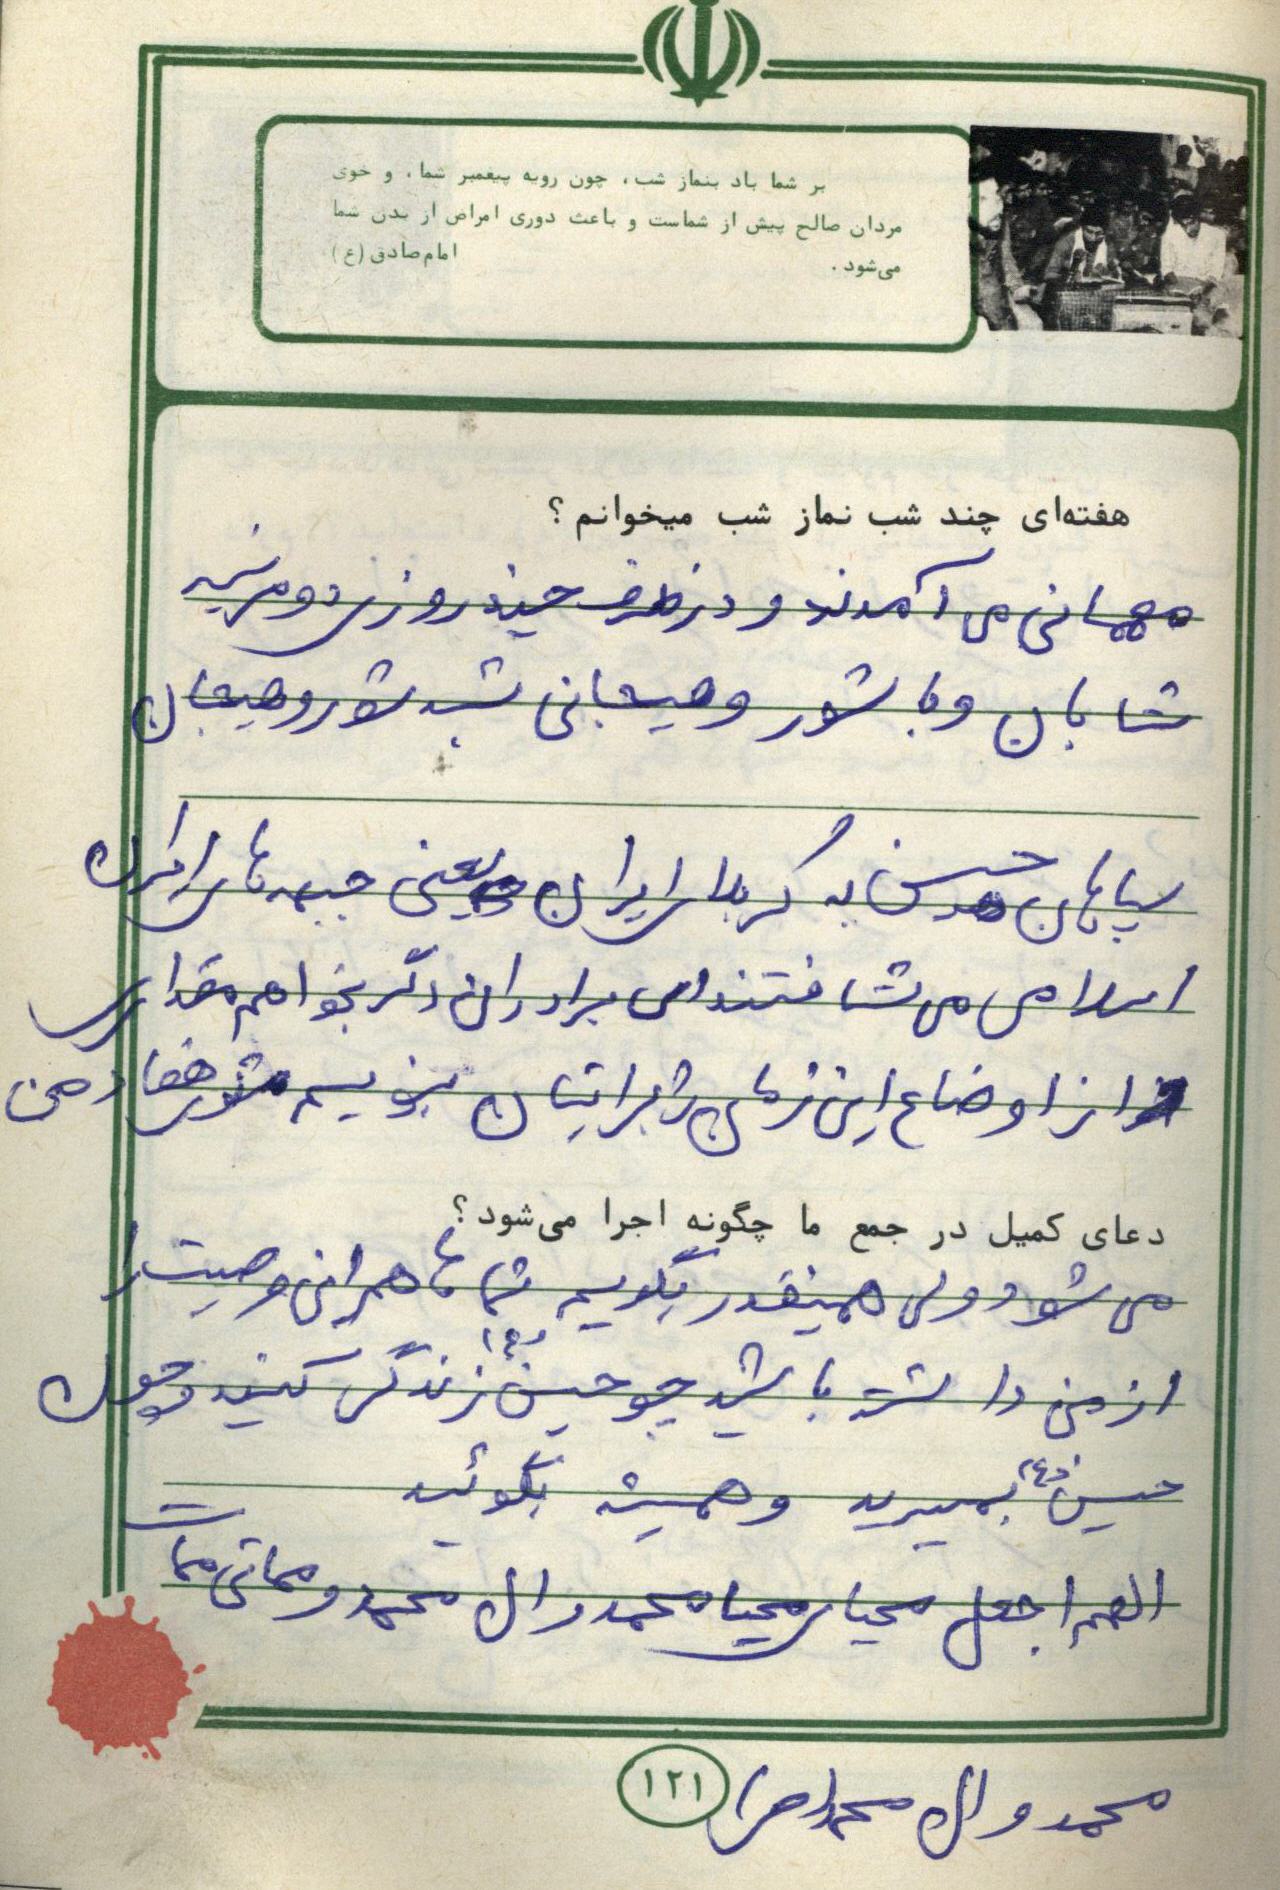 بر شما باد بنماز شب، چون رویه پیغمبر شما، و خوی
مردان صالح پیش از شماست و باعث دوری امراض از بدن شما
می‌شود. امام صادق (ع)
هفته‌ای چند شب نماز شب میخوانم؟
مهمانی می آمدند و در ظرف چند روزی دو مرتبه
شتابان و با شور و هیجانی شد شور و هیجان
سپاهان حسین به کربلای ایران یعنی جبهه های
اسلامی می شتافتند برادران دگر بخواهم مقداری
از اوضاع این زمان را برایتان بنویسم
دعای کمیل در جمع ما چگونه اجرا می‌شود؟
می شود ولی همینقدر بگویم شماها هم این وصیت را
از من داشته باشید چو حسین (ع) زندگی کنید و چون
حسین (ع) بمیرید و همیشه بگوئید
الهم اجعل محیای محیا محمد و ال محمد و مماتی ممات
محمد و ال محمد
۱۲۱